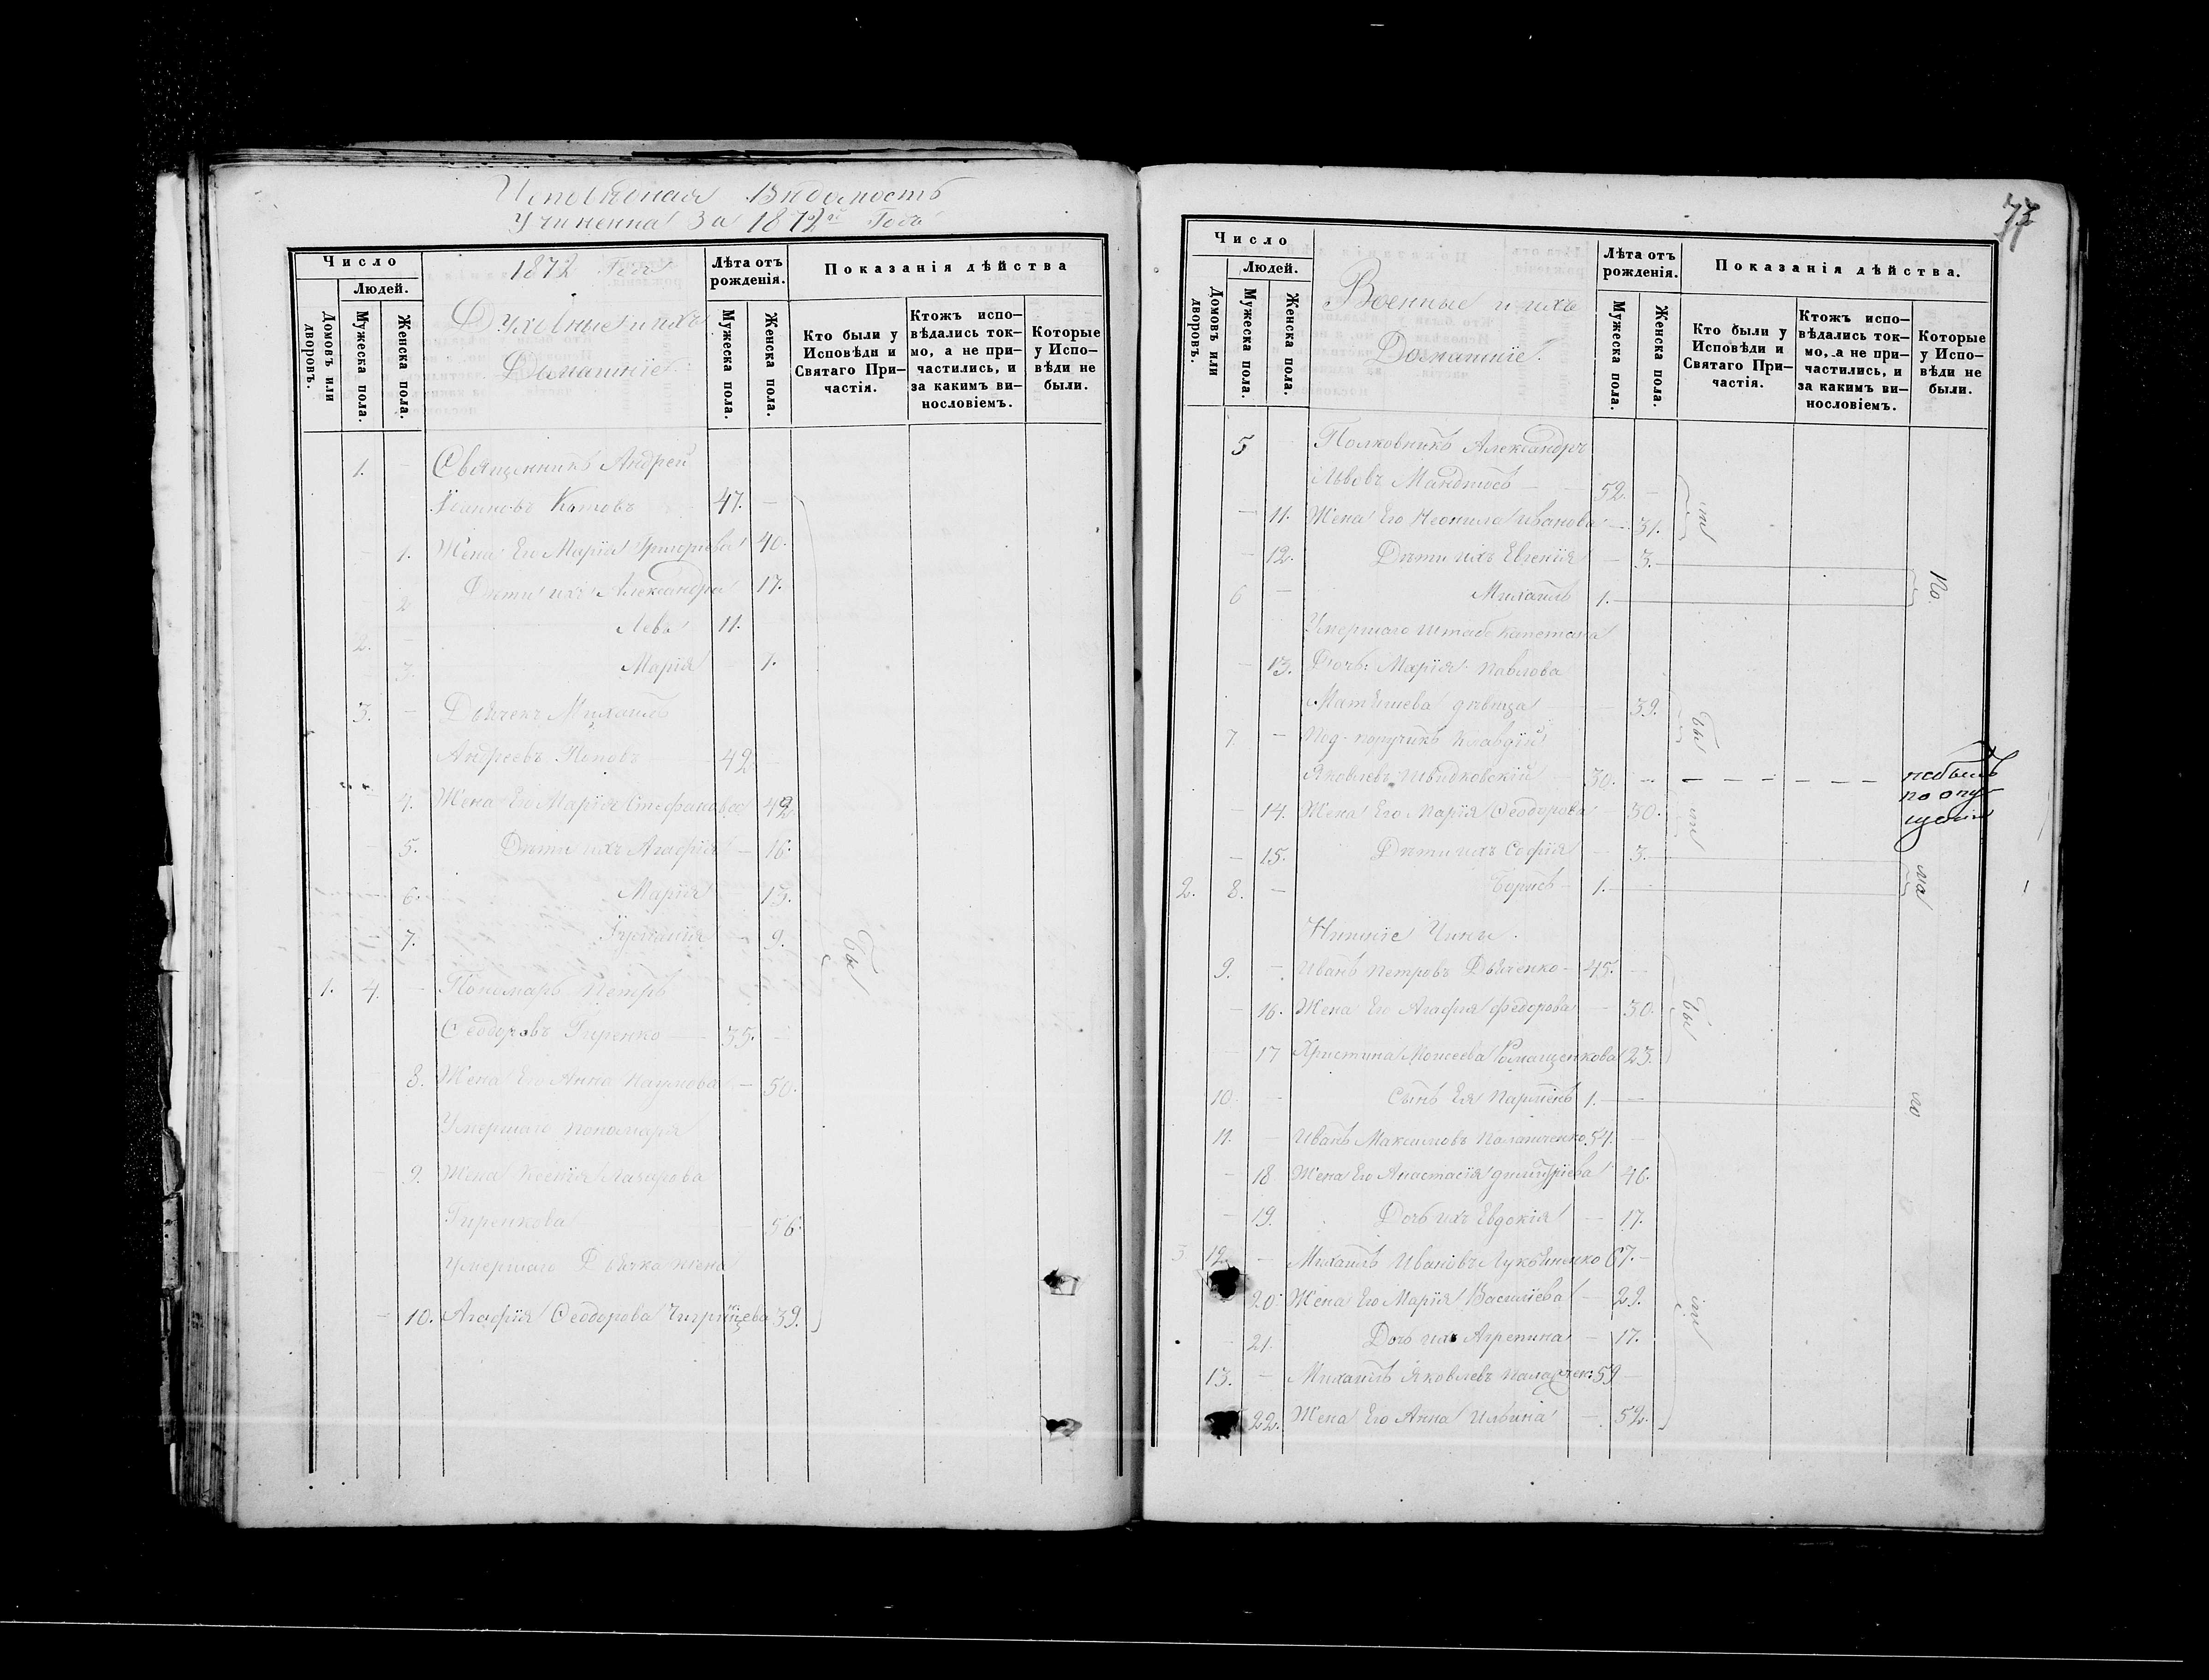 Исповѣдная Вѣдомость
Учиненна За 1872й Годъ
Число
1872 Годъ
Лѣта отъ рожденія.
Показанія дѣйства
Людей.
Домовъ или дворовъ.
Мужеска пола.
Женска пола.
Духовные и ихъ
Домашніе.
Мужеска пола.
Женска пола.
Кто были у Исповѣди и Святаго При-частія.
Ктожъ испо-вѣдались ток-мо, а не при-частились, и за какимъ ви-нословіемъ.
Которые у Испо-вѣди не были.
1. Священникъ Андрей
Іоанновъ Котовъ 47. —
— 1. Жена Его Марія Григорьева 40.
— 2 Дѣти ихъ Александра 17.
2. — Левъ 11.
3. Марія 7.
3. — Дьячекъ Михаилъ
Андреевъ Поповъ 42 —
— 4. Жена Его Марія Стефановa 42
— 5. Дѣти ихъ Агафія — 16.
6. Марія 13.
7. — 9.
Бы
1. 4. — Пономарь Петръ
Феодоровъ Гиренко 35. —
8. Жена Его Анна Наумова — 50.
Умершаго пономаря
— 9. Жена Ксенія Лазарова
Гиренкова — 56.
Умершаго Дьячка жена
— 10. Агафія Феодорова 39.
77
Число
Лѣта отъ рожденія.
Показанія дѣйства.
Людей.
Домовъ или дворовъ.
Мужеска пола.
Женска пола.
Военные и ихъ
Домашніе.
Мужеска пола.
Женска пола.
Кто были у Исповѣди и Святаго При-частія.
Ктожъ испо-вѣдались ток-мо, а не при-частились, и за какимъ ви-нословіемъ.
Которые у Испо-вѣди не были.
5 Полковникъ Александръ
Львовъ — 52. —
— 11. Жена Его Неонила Иванова — 31.
— 12. Дѣти ихъ Евгенія — 3.
6 — Михаилъ 1.
Умершаго Штабс Капетана
— 13. Дочь: Марія Павлова
дѣвица — 39.
7. — Под-поручикъ Клавдій
Яковлевъ Швидковскій 30. —
небылъ
по опу-
щенію
— 14. Жена Его Марія Феодорова — 30.
— 15. Дѣти ихъ Софія — 3.
ма
2. 8. — Борисъ 1.
Нижніе Чины.
9. — Иванъ Петровъ Дьяченко 45. —
— 16. Жена Его Агафія Федорова — 30.
Бы
— 17 Христина Моисеева Ромащенкова 23.
10. — Сынъ Ея Парменъ 1. —
11. — Иванъ Максимовъ 54. —
— 18 Жена Его Анастасія Димитріева 46.
— 19. Дочь ихъ Евдокія — 17.
3 12 — Михаилъ Ивановъ Лукьяненко 67. —
20. Жена Его Марія Василіева — 29.
— 21. Дочь ихъ Агрепина — 17.
13. — Михаилъ Яковлевъ 59 —
22. Жена Его Анна Ильина — 52.